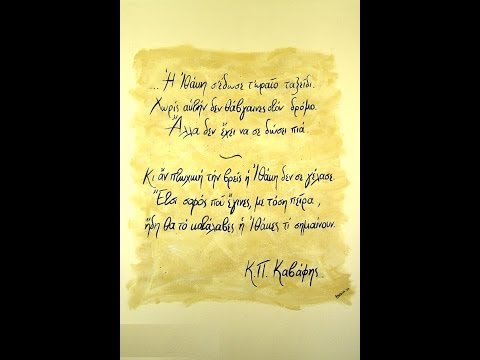 ...Ἡ Ἰθάκη σ'ἔδωσε τ'ὡραῖο ταξείδι.
Χωρίς αὐτήν δεν θἄβγαινες στόν δρόμο.
Ἄλλα δεν ἔχει να σε δώσει πιά.
Κι ἄν πτωχική τήν βρεῖς ἡ Ἰθάκη δεν σε γέλασε
Ἔτσι σοφός πού ἔγινες, με τόση πεῖρα,
ἤδη θα τό κατάλαβες ἡ Ἰθάκες τί σημαίνουν.
Κ.Π. Καβάφης